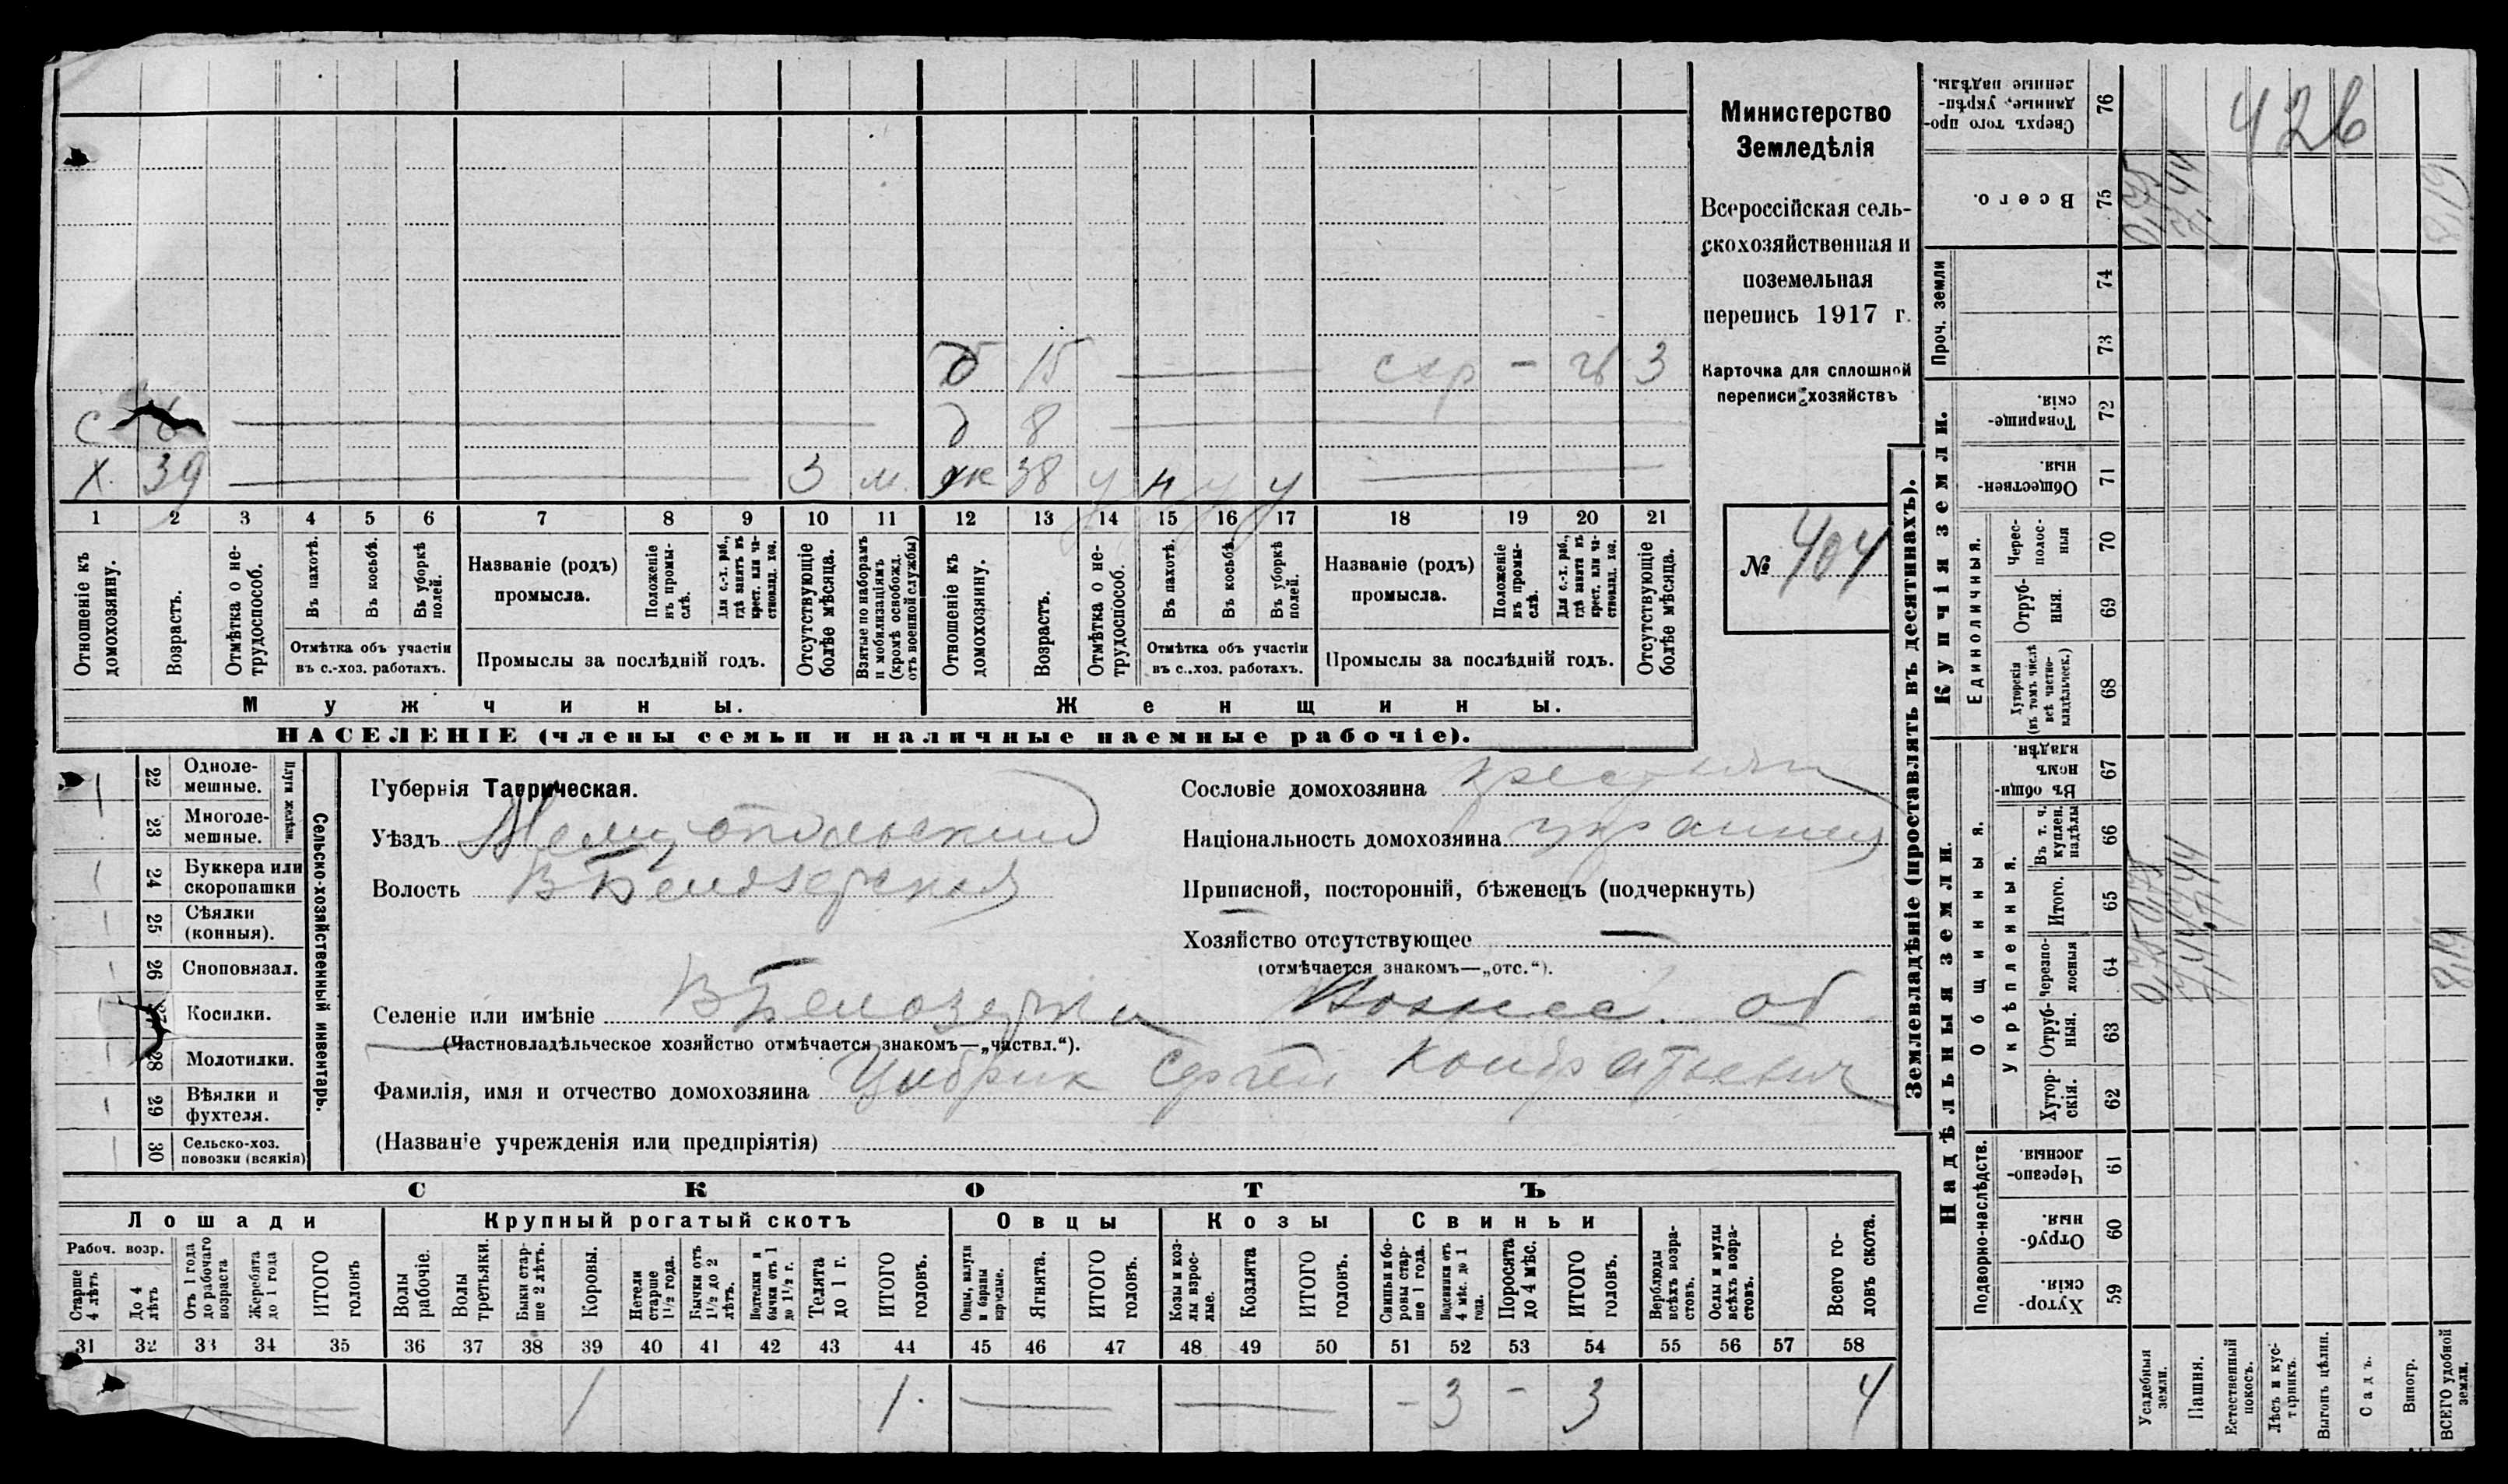 Министерство
Земледѣлія
Всероссійская сель-
скохозяйственная и
поземельная
перепись 1917 г.
Карточка для сплошной
переписи хозяйствъ
№ 404
д 15 — схр - 3
с 6 — д 8 —
х. 39 — 3 м. ж 38 у н у у —
1 2 3 4 5 6 7 8 9 10 11 12 13 14 15 16 17 18 19 20 21
Отношеніе къ домохозяину.
Возрастъ.
Отмѣтка о не-трудоспособ.
Въ пахотѣ.
Въ косьбѣ.
Въ уборкѣ полей.
Отмѣтка объ участіи
въ с.-хоз. работахъ.
Названіе (родъ)
промысла.
Положеніе въ промы-слѣ.
Для с.-х. раб., гдѣ занятъ въ крест. или ча-стновлад. хоз.
Промыслы за послѣдній годъ.
Отсутствующіе болѣе мѣсяца.
Взятые по наборамъ и мобилизаціямъ (кромѣ освобожд. отъ военной службы)
Отношеніе къ домохозяину.
Возрастъ.
Отмѣтка о не-трудоспособ.
Въ пахотѣ.
Въ косьбѣ.
Въ уборкѣ полей.
Отмѣтка объ участіи
въ с.-хоз. работахъ.
Названіе (родъ)
промысла.
Положеніе въ промы-слѣ.
Для с.-х. раб., гдѣ занята въ крест. или ча-стновлад. хоз.
Промыслы за послѣдній годъ.
Отсутствующіе болѣе мѣсяца.
Мужчины.
Женщины.
НАСЕЛЕНІЕ (члены семьи и наличные наемные рабочіе).
Сельско-хозяйственный инвентарь.
Плуги желѣзн.
22 Одноле-мешные. 1
23 Многоле-мешные.
24 Буккера или скоропашки
25 Сѣялки (конныя).
26 Сноповязал.
27 Косилки.
28 Молотилки.
29 Вѣялки и фухтеля.
30 Сельско-хоз. повозки (всякія)
Губернія Таврическая.
Уѣздъ Мелитопольский
Волость В Белозерская
Сословіе домохозяина
Національность домохозяина
Приписной, посторонній, бѣженецъ (подчеркнуть)
Хозяйство отсутствующее —
(отмѣчается знакомъ—„отс.“).
Селеніе или имѣніе В Белозерка Вознес. об
(Частновладѣльческое хозяйство отмѣчается знакомъ—„частвл.“).
Фамилія, имя и отчество домохозяина Цибрик Сергей Кондратьевич
(Названіе учрежденія или предпріятія)
СКОТЪ
Лошади
Крупный рогатый скотъ
Овцы
Козы
Свиньи
Рабоч. возр.
Старше 4 лѣтъ
До 4 лѣтъ
Отъ 1 года до рабочаго возраста
Жеребята до 1 года
ИТОГО головъ
Волы рабочіе.
Волы третьяки.
Быки стар-ше 2 лѣтъ.
Коровы.
Нетели старше 1 1/2 года.
Бычки отъ 1 1/2 до 2 лѣтъ.
Подтелки и бычки отъ 1 до 1 1/2 г.
Телята до 1 г.
ИТОГО головъ.
Овцы, валухи и бараны взрослые.
Ягнята.
ИТОГО головъ.
Козы и коз-лы взрос-лые.
Козлята
ИТОГО головъ.
Свиньи и бо-ровы стар-ше 1 года.
Подсвинки отъ 4 мѣс. до 1 года.
Поросята до 4 мѣс.
ИТОГО головъ.
Верблюды всѣхъ возра-стовъ.
Ослы и мулы всѣхъ возра-стовъ.
Всего го-ловъ скота.
31 32 33 34 35 36 37 38 39 40 41 42 43 44 45 46 47 48 49 50 51 52 53 54 55 56 57 58
— 1 1. — — - 3 - 3 4
Землевладѣніе (проставлять въ десятинахъ).
Надѣльныя земли.
Купчія земли.
Проч. земли
Подворно-наслѣдств.
Общинныя.
Укрѣпленныя.
Единоличныя.
59 Хутор-скія.
60 Отруб-ныя.
61 Черезпо-лосныя.
62 Хутор-скія.
63 Отруб-ныя.
64 Черезпо-лосныя
65 Итого.
66 Въ т. ч. куплен. надѣлы
67 Въ общи-номъ владѣн.
68 Хуторскія (въ томъ числѣ всѣ частно-владѣльческ.)
69 Отруб-ныя.
70 Черес-полос-ныя
71 Обществен-ныя.
72 Товарище-скія.
73
74
75 Всего.
76 Сверхъ того про-данные, укрѣп-ленные надѣлы.
Усадебныя земли. 0,75 0,75 0,75
Пашня. 7,44 7,44 7,44
Естественный покосъ.
Лѣсъ и кус-тарникъ.
Выгонъ цѣлин.
Садъ.
Виногр.
ВСЕГО удобной земли. 8,19 8,19
426